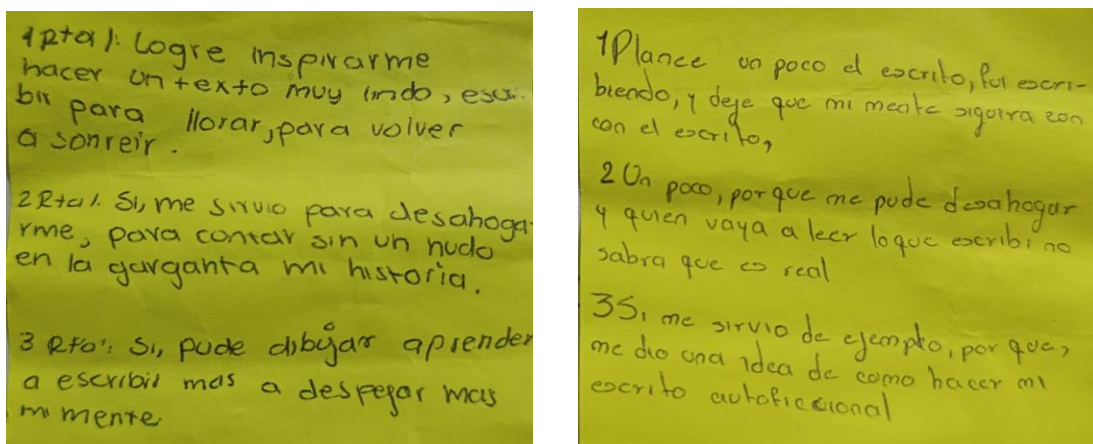 1Rta/: Logre inspirarme
hacer un texto muy lindo, escri-
bir para llorar, para volver
a sonreir.
2Rta/. Si, me sirvio para desahoga-
rme, para contar sin un nudo
en la garganta mi historia.
3 Rta: Si, pude dibujar aprender
a escribir mas a despejar mas
mi mente
1 Planee un poco el escrito, fui escri-
biendo, y deje que mi mente siguira con
con el escrito,
2 Un poco, porque me pude desahogar
y quien vaya a leer lo que escribi no
sabra que es real
3 Si me sirvio de ejemplo, por que,
me dio una idea de como hacer mi
escrito autoficcional